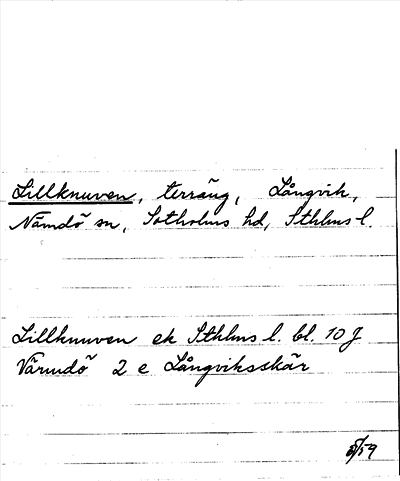 Lillknuven, terräng, Långvik,
Nämdö sn, Sotholms hd, Sthlms l.
Lillknuven ek Sthlms l. bl. 10 J
Värmdö 2 e Långviksskär
5/59